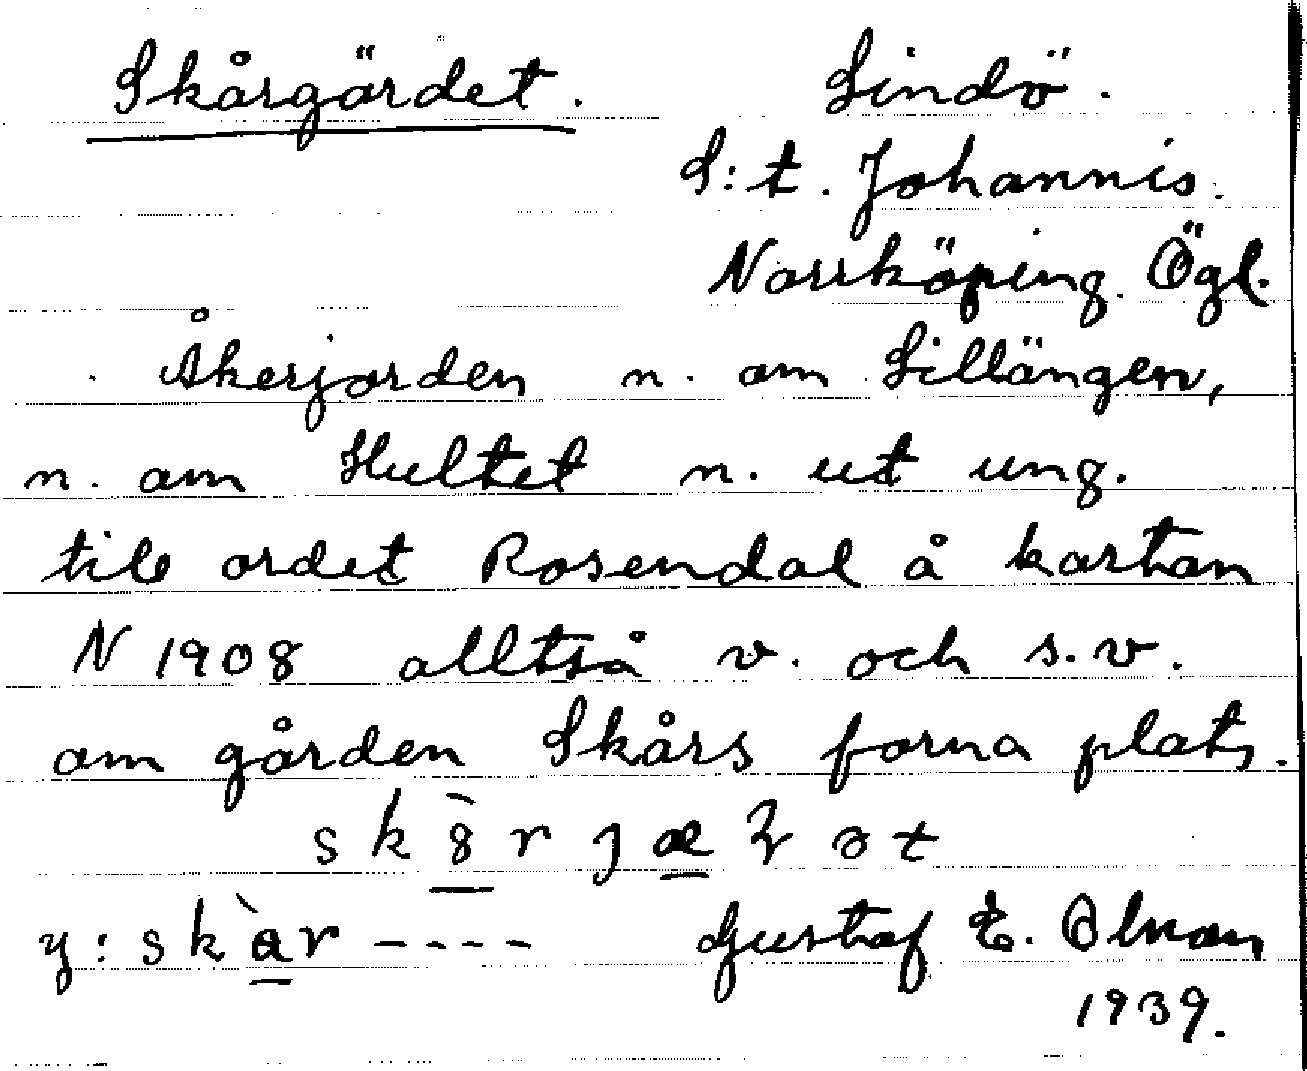 Skårgärdet. Lindö.
S:t. Johannis.
Norrköping. Ögl.
Åkerjorden n. om Lillängen,
n. om Hultet n. ut ung.
till ordet Rosendal å kartan
N 1908 alltså v. och s.v.
om gården Skårs forna plats.
y: skàr ----  Gustaf E. Alman
1939.